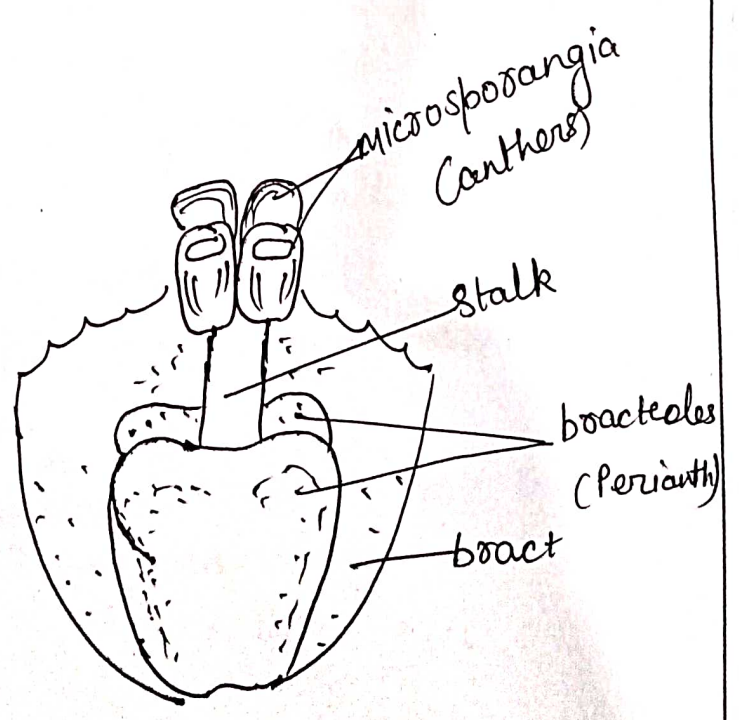 microsporangia
(anthers)
stalk
bracteoles
(Perianth)
bract